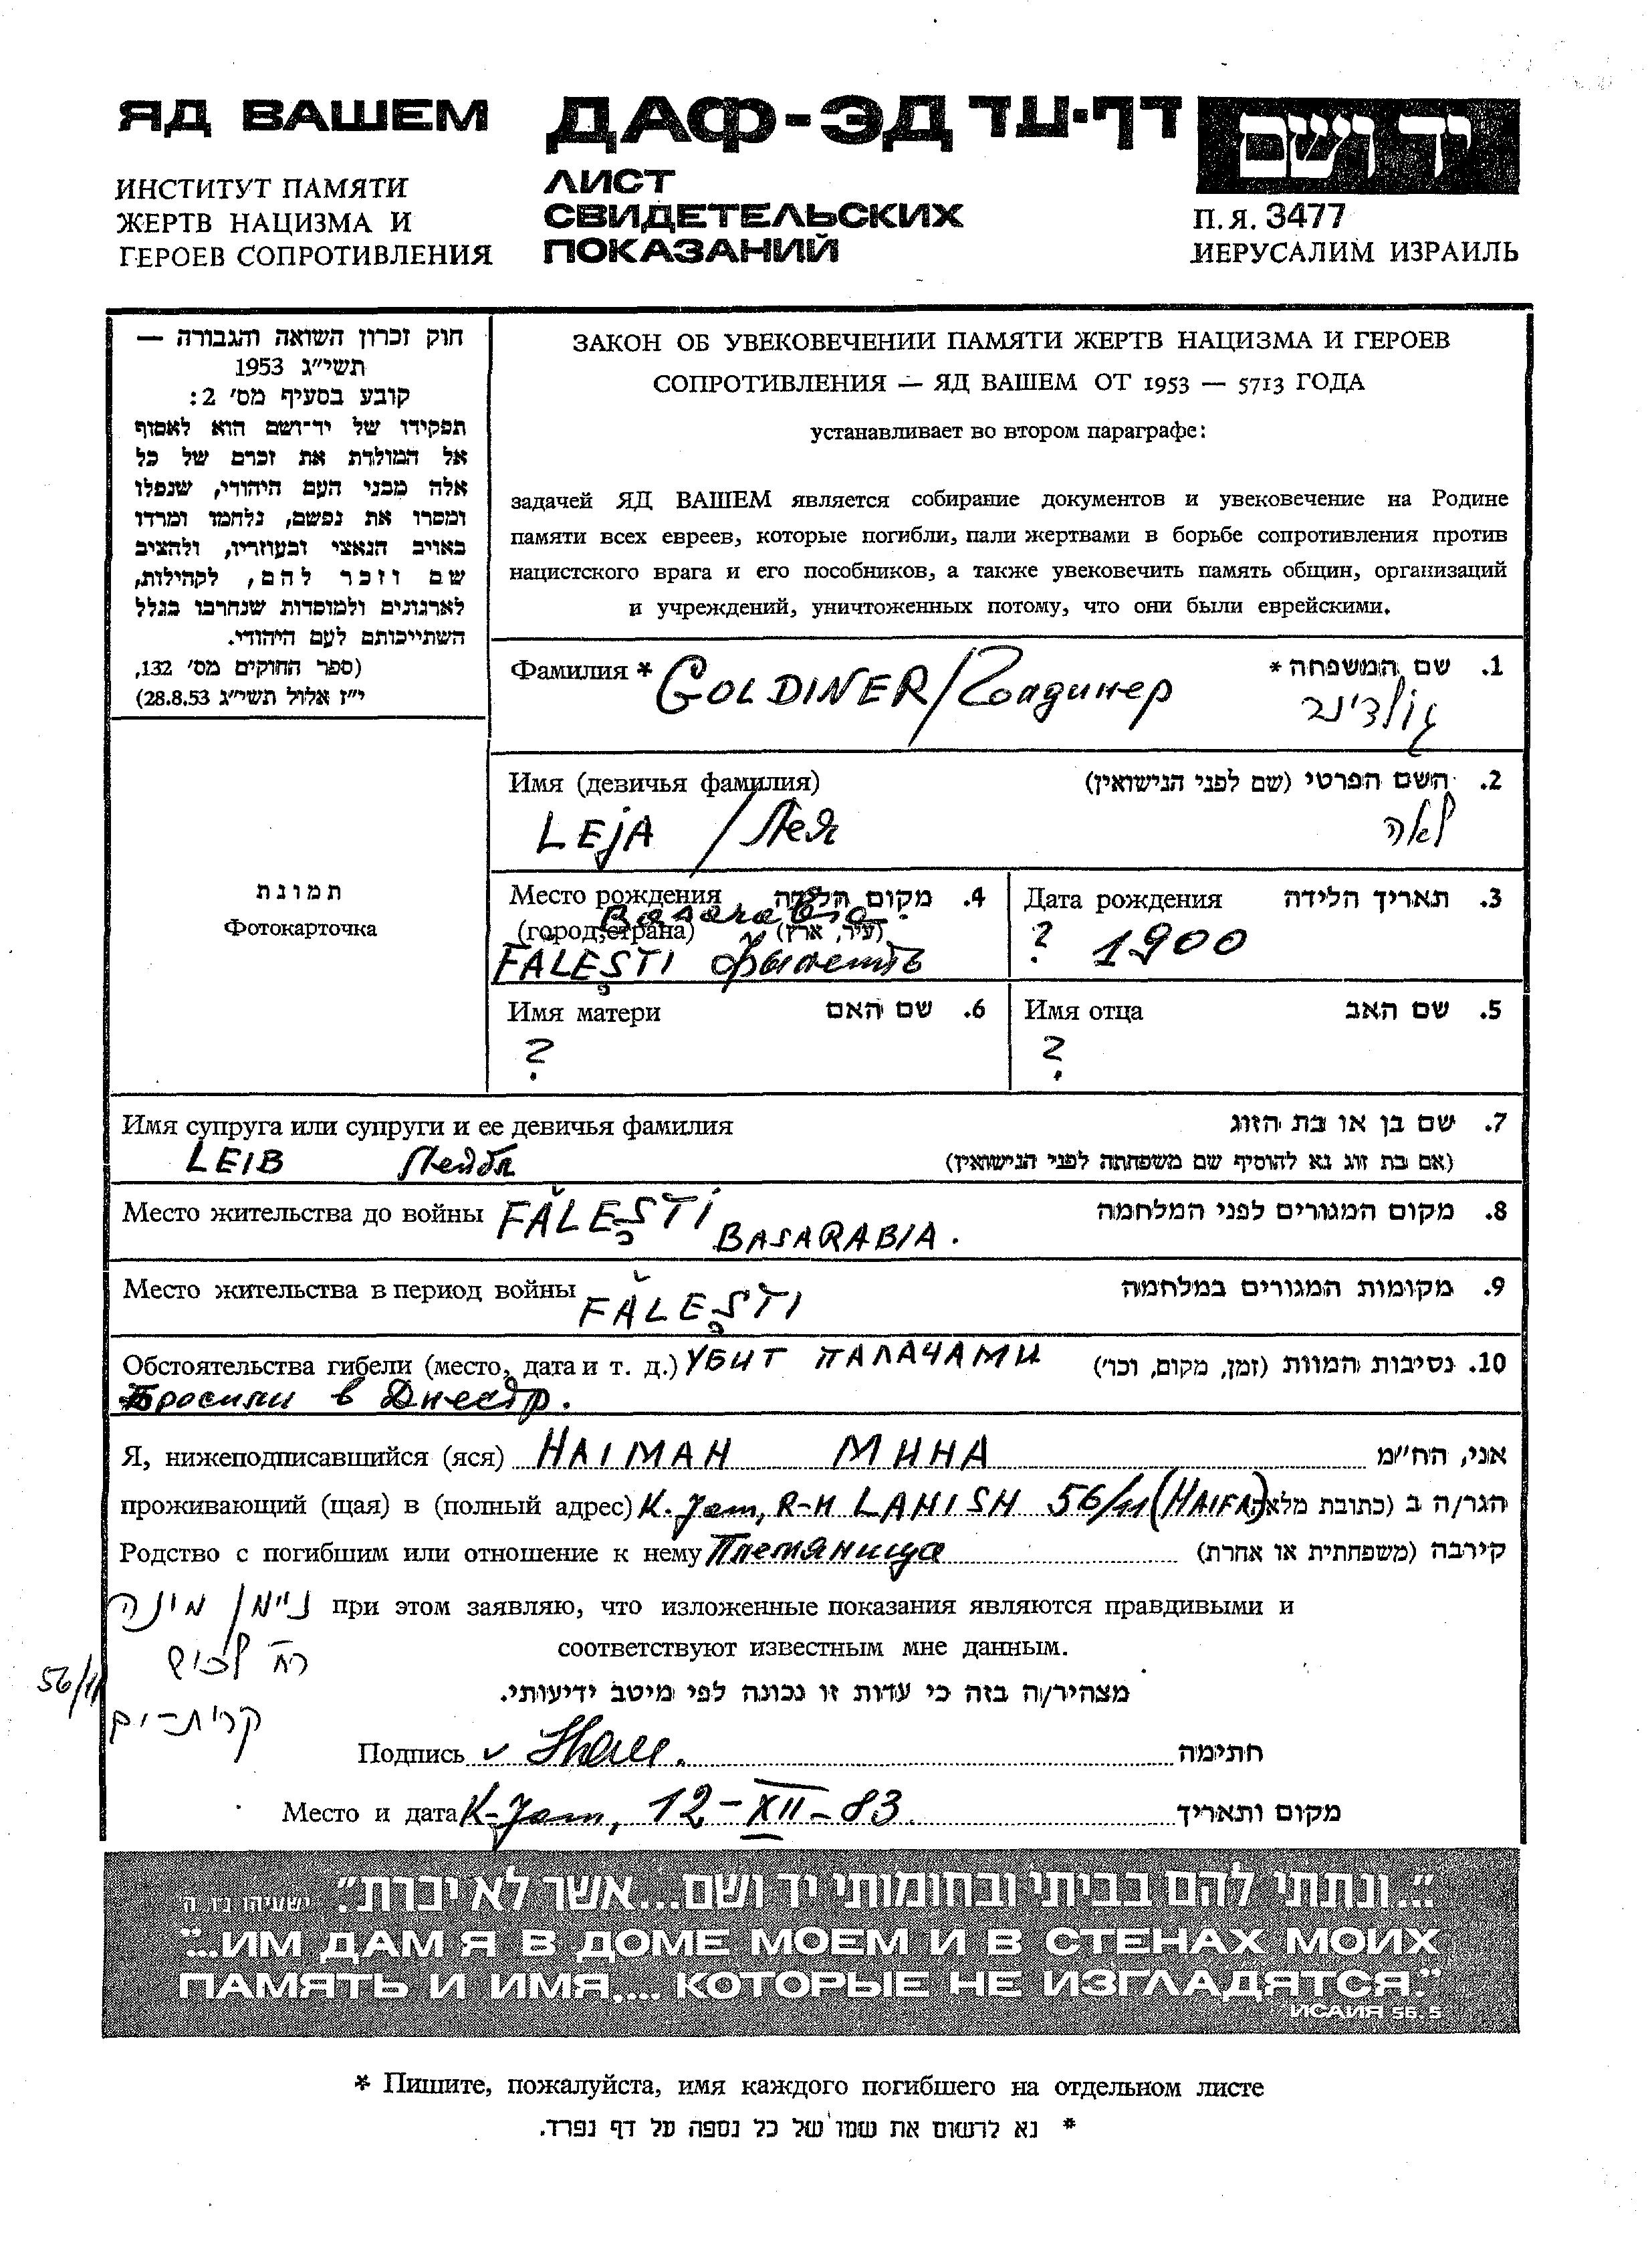 ЯД ВАШЕМ
ИНСТИТУТ ПАМЯТИ
ЖЕРТВ НАЦИЗМА И
ГЕРОЕВ СОПРОТИВЛЕНИЯ
ДАФ-ЭД דף-עד
ЛИСТ
СВИДЕТЕЛЬСКИХ
ПОКАЗАНИЙ
יד ושם
П.Я. 3477
ИЕРУСАЛИМ ИЗРАИЛЬ
חוק זכרון השואה והגבורה —
תשי״ג 1953
קובע בסעיף מס׳ 2:
תפקידו של יד־ושם הוא לאסוף
אל המולדת את זכרם של כל
אלה מבני העם היהודי, שנפלו
ומסרו את נפשם, נלחמו ומרדו
באויב הנאצי ובעוזריו, ולהציב
שם וזכר להם, לקהילות,
לארגונים ולמוסדות שנחרבו בגלל
השתייכותם לעם היהודי.
(ספר החוקים מס׳ 132,
י״ז אלול תשי״ג 28.8.53)
ЗАКОН ОБ УВЕКОВЕЧЕНИИ ПАМЯТИ ЖЕРТВ НАЦИЗМА И ГЕРОЕВ
СОПРОТИВЛЕНИЯ — ЯД ВАШЕМ ОТ 1953 — 5713 ГОДА
устанавливает во втором параграфе:
задачей ЯД ВАШЕМ является собирание документов и увековечение на Родине
памяти всех евреев, которые погибли, пали жертвами в борьбе сопротивления против
нацистского врага и его пособников, а также увековечить память общин, организаций
и учреждений, уничтоженных потому, что они были еврейскими.
Фамилия * GOLDINER/Голдинер
1. שם המשפחה *
גולדינר
Имя (девичья фамилия)
2. השם הפרטי (שם לפני הנישואין)
LEJA / Лея
לאה
תמונת
Фотокарточка
Место рождения 4. מקום הלידה
Basarabia
(город, страна) (עיר, ארץ)
FĂLEȘTI Фылешть
Дата рождения 3. תאריך הלידה
? 1900
Имя матери 6. שם האם
?
Имя отца 5. שם האב
?
Имя супруга или супруги и ее девичья фамилия 7. שם בן או בת הזוג
LEIB Лейба (אם בת זוג נא להוסיף שם משפחתה לפני הנישואין)
Место жительства до войны FĂLEȘTI 8. מקום המגורים לפני המלחמה
BASARABIA.
Место жительства в период войны FĂLEȘTI 9. מקומות המגורים במלחמה
Обстоятельства гибели (место, дата и т. д.) УБИТ ПАЛАЧАМИ 10. נסיבות המוות (זמן, מקום, וכו׳)
Бросили в Днестр.
Я, нижеподписавшийся (яся) НАIМАН МИНА אני, הח״מ
проживающий (щая) в (полный адрес) K. Jam, R-H LAHISH 56/11 (HAIFA) הגר/ה ב (כתובת מלאה)
Родство с погибшим или отношение к нему Племяница קירבה (משפחתית או אחרת)
ניימן מינה при этом заявляю, что изложенные показания являются правдивыми и
соответствуют известным мне данным.
רח׳ לכיש
56/11
מצהיר/ה בזה כי עדות זו נכונה לפי מיטב ידיעותי.
קרית-ים
Подпись v חתימה
Место и дата K-Jam, 12-XII-83 מקום ותאריך
״...ונתתי להם בביתי ובחומותי יד ושם...אשר לא יכרת״. ישעיהו נו. ה
"...ИМ ДАМ Я В ДОМЕ МОЕМ И В СТЕНАХ МОИХ
ПАМЯТЬ И ИМЯ.... КОТОРЫЕ НЕ ИЗГЛАДЯТСЯ."
ИСАИЯ 56.5
* Пишите, пожалуйста, имя каждого погибшего на отдельном листе
* נא לרשום את שמו של כל נספה על דף נפרד.